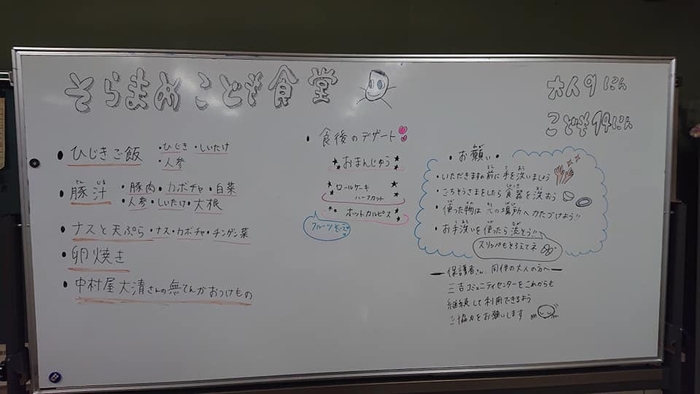 そらまめこども食堂
大人9にん
こども14にん
・ひじきご飯 ・ひじき・しいたけ
・人参
・豚汁 ・豚肉・カボチャ・白菜
とん じる
・人参・しいたけ・大根
・ナスと天ぷら ・ナス・カボチャ・チンゲン菜
・卵焼き
・中村屋大清さんの無てんかおつけもの
・食後のデザート
おまんじゅう
ロールケーキ
ハーフカット
ホットカルピス
フルーツ
・お願い・
・いただきますの前に手を洗いましょう
・ごちそうさまをしたら食器を洗おう
・使った物は元の場所へかたづけよう!!
・お手洗いを使たら流そう
スリッパもそろえてネ
保護者さん、同伴の大人の方へ
三吉コミュニティセンターをこれからも
継続して利用できるよう
ご協力をお願いします